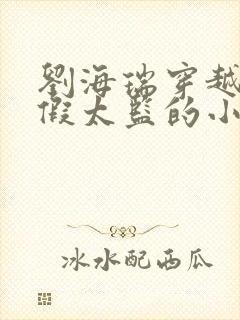 劉海瑞穿越
假太監的小
冰水配西瓜